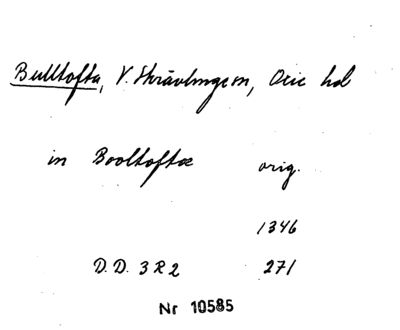 Bulltofta, V. Skrävlinge sn, Oxie hd
in Booltoftæ orig.
1346
D.D. 3 R 2 271
Nr 10585